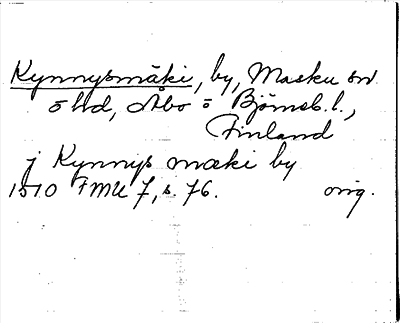 Kynnysmäki, by, Masku sn.
ö hd, Åbo o Björneb. l.,
Finland
j Kynnys mæki by
1510 FMU 7, s. 76. orig.